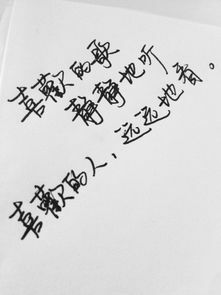 喜歡的歌
靜靜地听
喜歡的人，远远地看。